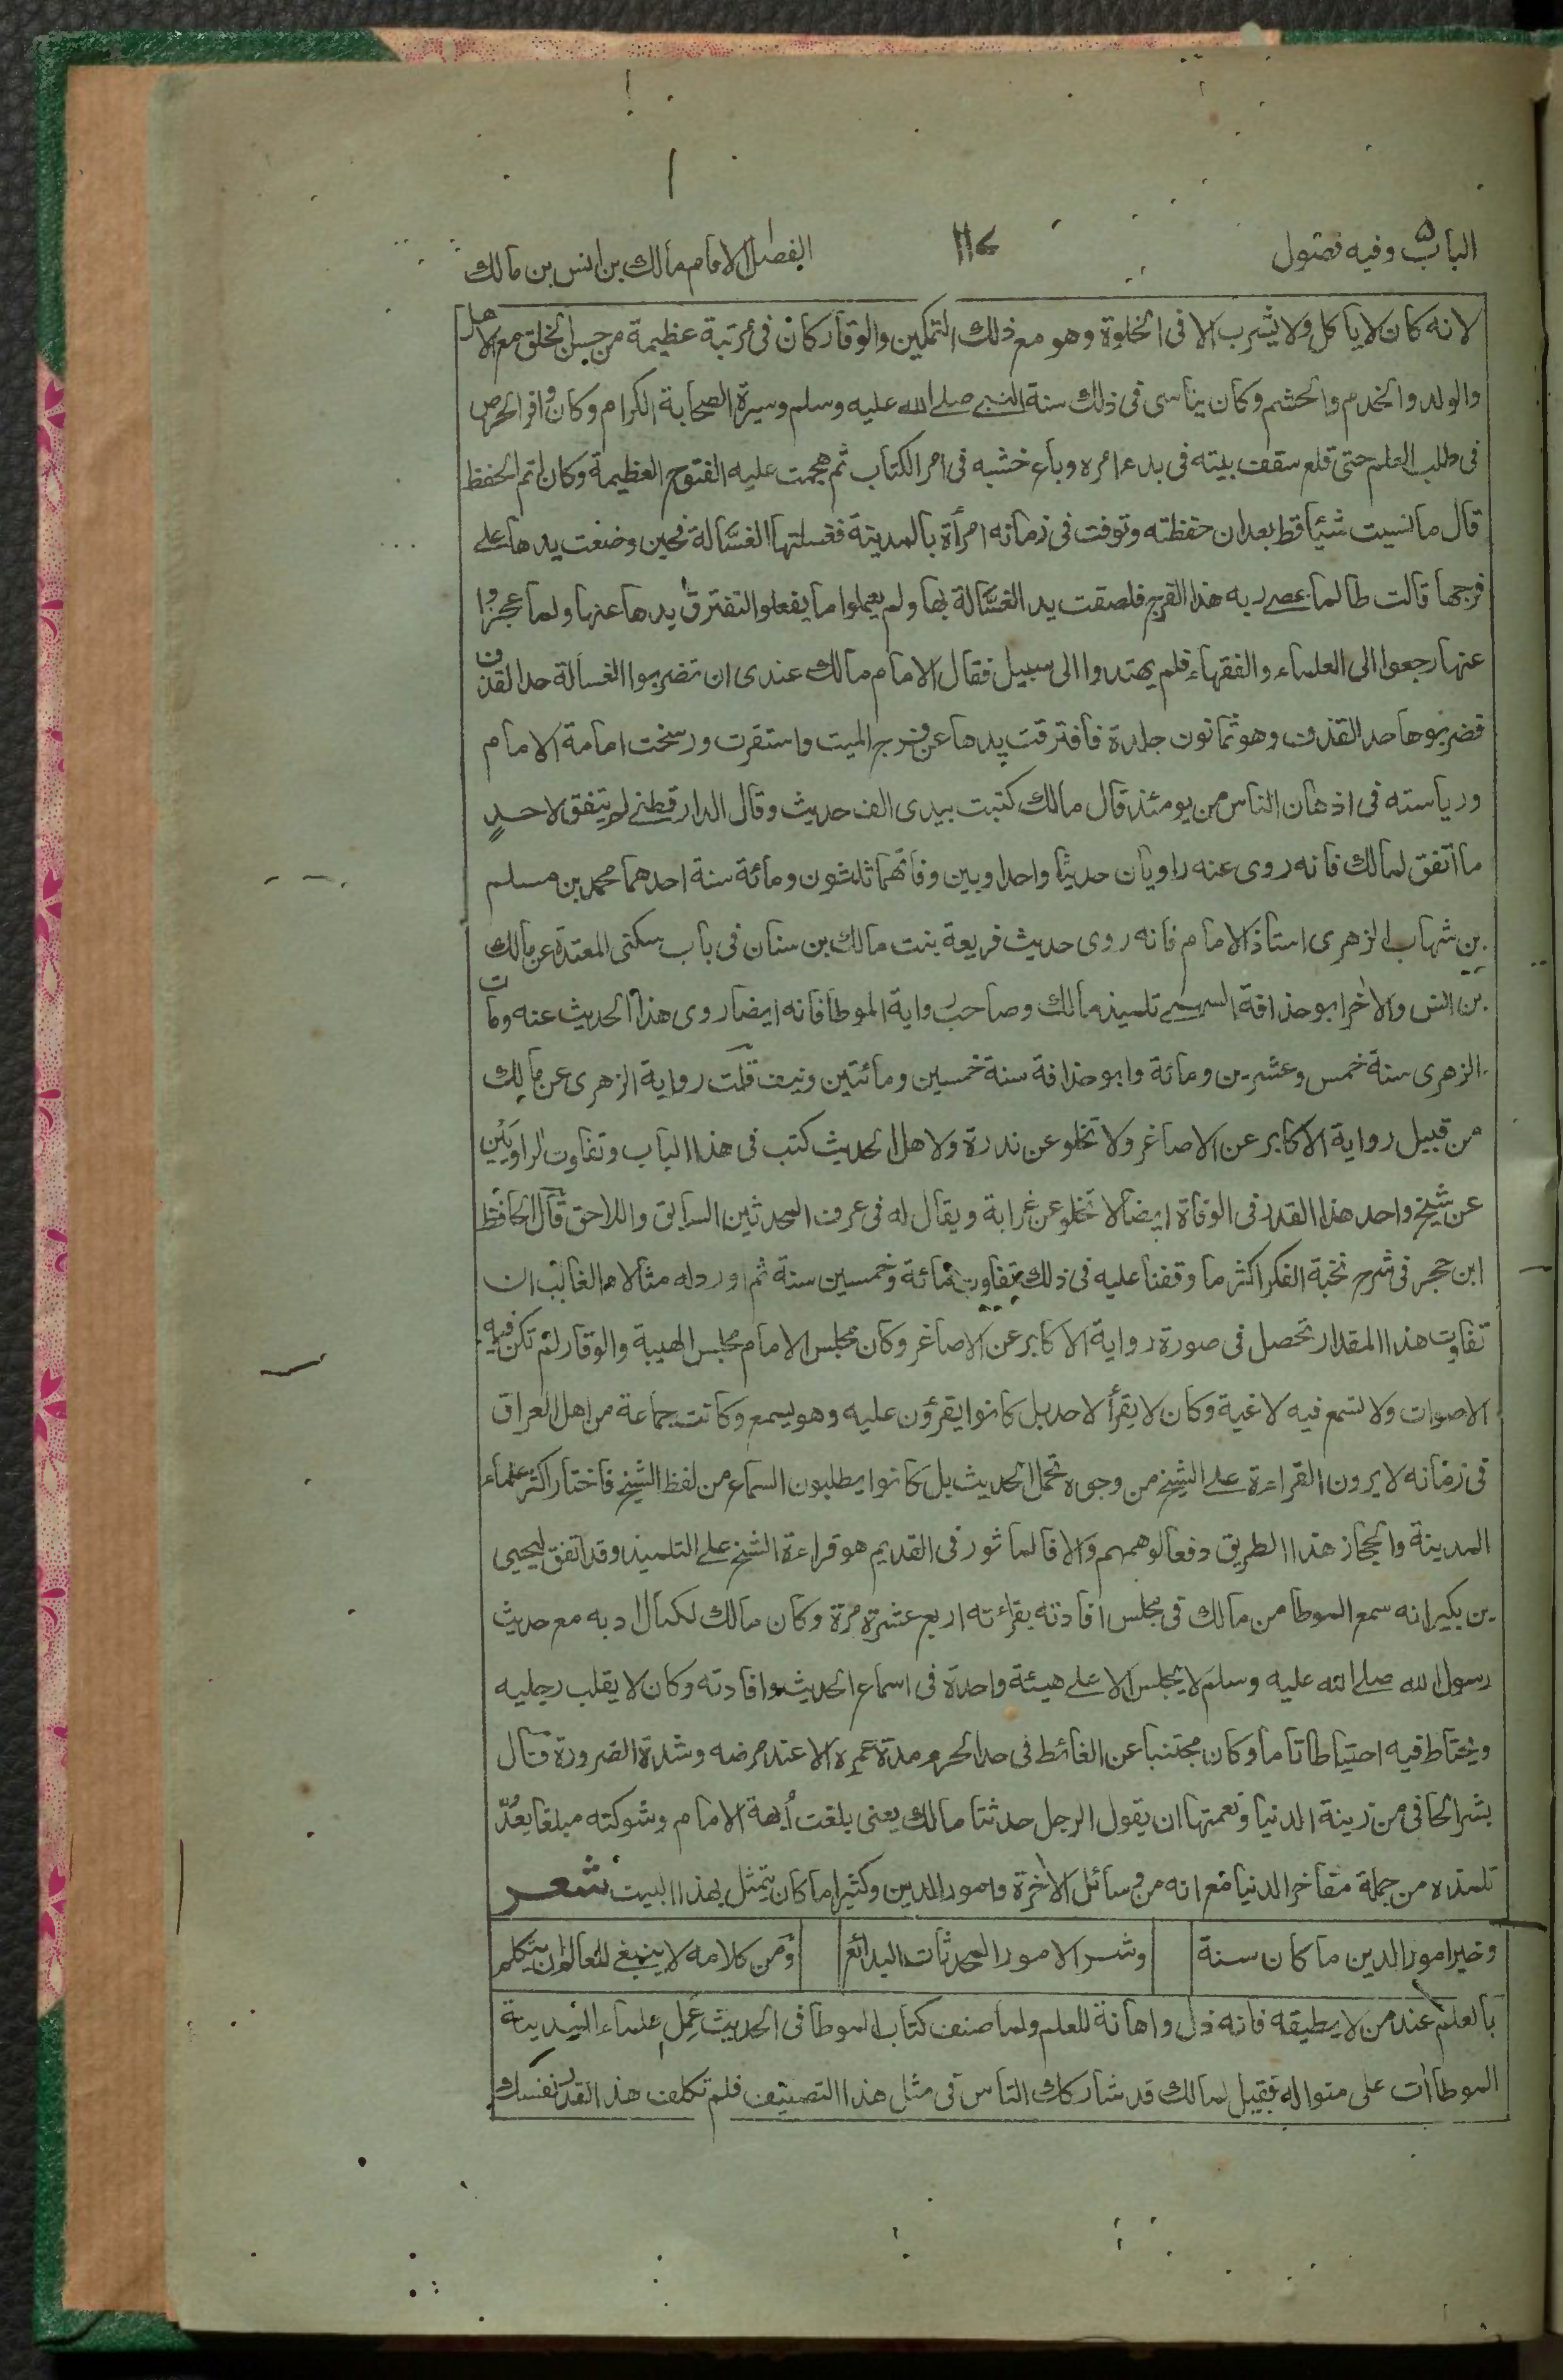 الباب ۵ وفيه فصول
١١٧
الفصل ١ الامام مالك بن انس بن مالك
لانه كان لا يأكل ولا يشرب الا فى الخلوة وهو مع ذلك التمكين والوقار كان فى مرتبة عظيمة من حسن الخلق مع الاهل
والولد والخدم والحشم وكان يتأسى فى ذلك سنة النبي صلى الله عليه وسلم وسيرة الصحابة الكرام وكان وافر الحرص
فى طلب العلم حتى قلع سقف بيته فى بدء امره وباع خشبه فى امر الكتاب ثم هجمت عليه الفتوح العظيمة وكان اتم الحفظ
قال ما نسيت شيئا قط بعد ان حفظته وتوفت فى زمانه امرأة بالمدينة فغسلتها الغسّالة فحين وضعت يدها على
فرجها قالت طالما عصى ربه هذا الفرج فلصقت يد الغسّالة بها ولم يعملوا ما يفعلوا لتفترق يدها عنها ولما عجزوا
عنها رجعوا الى العلماء والفقهاء فلم يهتدوا الى سبيل فقال الامام مالك عندى ان تضربوا الغسالة حد القذف
فضربوها حد القذف وهو ثمانون جلدة فافترقت يدها عن فرج الميت واستقرت ورسخت امامة الامام
ورياسته فى اذهان الناس من يومئذ قال مالك كتبت بيدى الف حديث وقال الدارقطنى لم يتفق لاحدٍ
ما اتفق لمالك فانه روى عنه راويان حديثا واحدا وبين وفاتهما ثلثون ومائة سنة احدهما محمد بن مسلم
بن شهاب الزهرى استاذ الامام فانه روى حديث فريعة بنت مالك بن سنان فى باب سكنى المعتدة عن مالك
بن انس والاخر ابو حذافة السهمى تلميذ مالك وصاحب رواية الموطا فانه ايضا روى هذا الحديث عنه ومات
الزهرى سنة خمس وعشرين ومائة وابو حذافة سنة خمسين ومائتين ونيف قلت رواية الزهرى عن مالك
من قبيل رواية الاكابر عن الاصاغر ولا تخلو عن ندرة ولاهل الحديث كتب فى هذا الباب وتفاوت الراويَين
عن شيخ واحد هذا القدر فى الوفاة ايضا لا تخلو عن غرابة ويقال له فى عرف المحدثين السابق واللاحق قال الحافظ
ابن حجر فى شرح نخبة الفكر اكثر ما وقفنا عليه فى ذلك تفاوت مائة وخمسين سنة ثم اورد له مثالا هـ الغالب ان
تفاوت هذا المقدار تحصل فى صورة رواية الاكابر عن الاصاغر وكان مجلس الامام مجلس الهيبة والوقار لم تكن فيه
الاصوات ولا تسمع فيه لاغية وكان لا يقرأ لاحد بل كانوا يقرؤن عليه وهو يسمع وكانت جماعة من اهل العراق
فى زمانه لا يرون القراءة على الشيخ من وجوه تحمل الحديث بل كانوا يطلبون السماع من لفظ الشيخ فاختار اكثر علماء
المدينة والحجاز هذا الطريق دفعا لوهمهم والا فالماثور فى القديم هو قراءة الشيخ على التلميذ وقد اتفق ليحيى
بن بكير انه سمع الموطا من مالك فى مجلس افادته بقرائته اربع عشرة مرة وكان مالك لكمال ادبه مع حديث
رسول الله صلى الله عليه وسلم لا يجلس الا على هيئة واحدة فى اسماع الحديث وافادته وكان لا يقلب رجليه
ويحتاط فيه احتياطا تاما وكان مجتنبا عن الغائط فى حد الحرم مدة عمره الا عند مرضه وشدة الضرورة قال
بشر الحافى من زينة الدنيا ونعمتها ان يقول الرجل حدثنا مالك يعنى بلغت أبهة الامام وشوكته مبلغا يعدّ
تلمذه من جملة مفاخر الدنيا مع انه من وسائل الاخرة وامور الدين وكثيرا ما كان يتمثل بهذا البيت شعر
وخير امور الدين ما كان سنة
وشر الامور المحدثات البدائع
ومن كلامه لا ينبغى للعالم ان يتكلم
بالعلم عند من لا يطيقه فانه ذل واهانة للعلم ولما صنف كتاب الموطا فى الحديث عمل علماء المدينة
الموطاات على منواله فقيل لمالك قد شاركك الناس فى مثل هذا التصنيف فلم تكلف هذا القدر نفسك